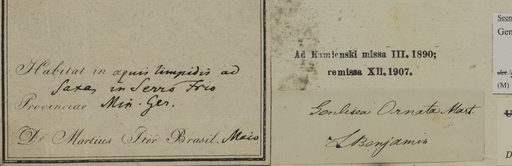 Habitat in aquis limpidis ad
Saxa in Serro Frio
Provinciae Min. Ger.
Dr Martius Iter Brasil. Maio
Ad Kamienski missa III. 1890;
remissa XII. 1907.
Genlisea Ornata Mart.
L Benjamin
Gen
(M)